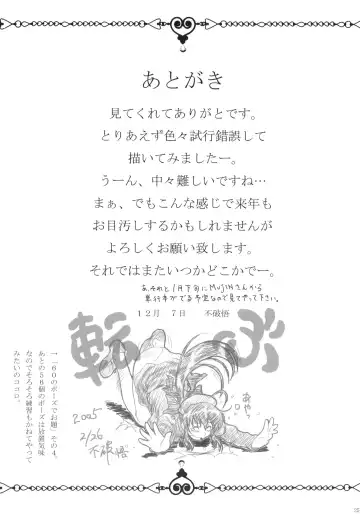 あとがき
見てくれてありがとです。
とりあえず色々試行錯誤して
描いてみましたー。
うーん、中々難しいですね…
まぁ、でもこんな感じで来年も
お目汚しするかもしれませんが
よろしくお願い致します。
それではまたいつかどこかでー。
あ、それと1月下旬にMUJINさんから
単行本がでる予定なので見てやって下さい。
12月 7日 不破悟
転ぶ
あやっ
2005
2/26
不破悟
↑「60のポーズでお題」その4。
あとの56個のポーズは放置気味
なのでそろそろ練習もかねてやって
みたいのココロ。